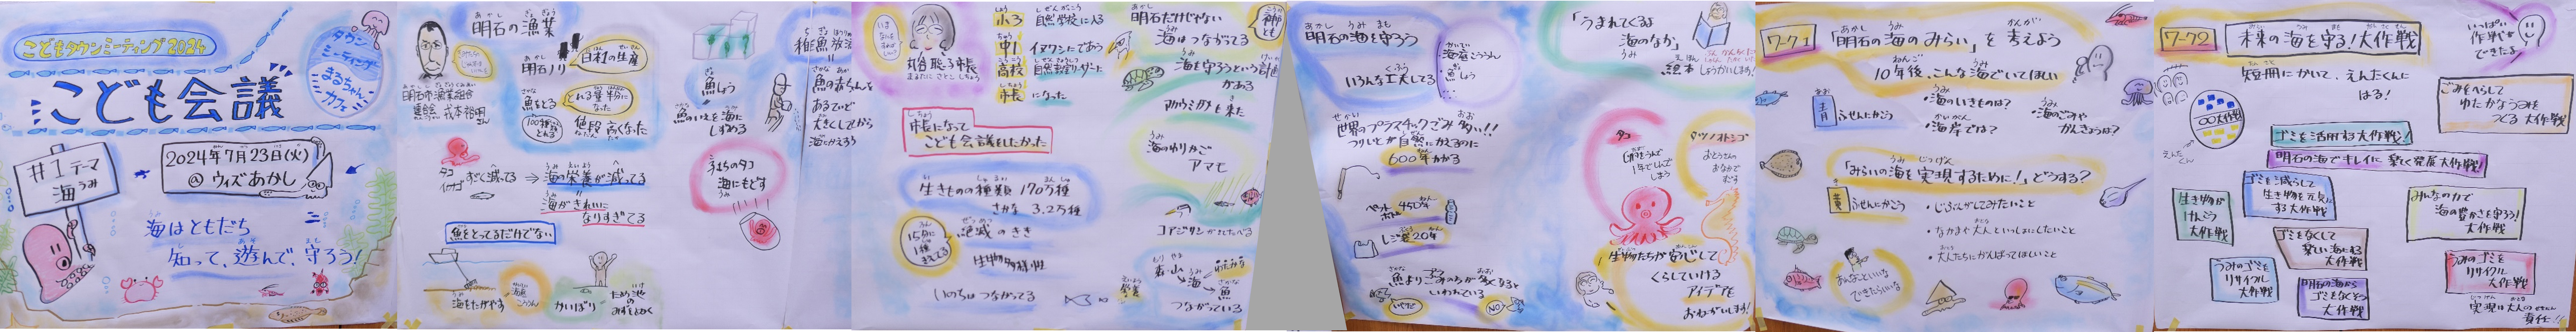 こどもタウンミーティング2024
こども会議
タウン
ミーティング
まるちゃん
カフェ
#1テーマ
海
うみ
2024年7月23日(火)
@ウィズあかし
海はともだち
知って、遊んで、守ろう!
明石の漁業
明石ノリ
日本一の生産
魚をとる
100種類
とれる
とれる量半分に
なった
値段高くなった
タコ
イカナゴ
すごく減ってる
海の栄養が減ってる
海がきれいに
なりすぎてる
魚をとってるだけでない
海をたがやす
かいぼり
ため池
の
魚しょう
魚のいえを海に
しずめる
うちらのタコ
海にもどす
稚魚放流
魚の赤ちゃんを
あるていど
大きくしてから
海にかえそう
丸谷聡子市長
まるたに さとこ しちょう
小3
自然学校に入る
中1
イヌワシにであう
高校
市長
になった
市長になって
こども会議をしたかった
生きものの種類 170万種
さかな 3.2万種
15分に
1種
絶滅のきき
生物多様性
いのちはつながってる
明石だけじゃない
海はつながってる
海を守ろうという計画
がある
アカウミガメも来た
海のゆりかご
アマモ
コアジサシ
森・山
海
魚
つながっている
明石の海を守ろう
いろんな工夫してる
魚しょう
世界のプラスチックごみ多い!!
つりいとが自然にかえるのに
600年かかる
ペット
ボトル
450年
レジ袋20年
魚よりごみのほうが多くなると
いわれている
NO!
「うまれてくるよ
海のなか」
絵本
しょうかいします!
タコ
1年でしんで
しまう
タツノオトシゴ
おとうさんの
おなかで
生物たちが安心して
くらしていける
アイデアを
おねがいします!
ワーク1
「明石の海のみらい」を考えよう
10年後、こんな海でいてほしい
青
ふせんにかこう
・海のいきものは?
・海岸では?
・海のごみや
かんきょうは?
「みらいの海を実現するために!」どうする?
黄
ふせんにかこう
・じぶんがしてみたいこと
・なかまや大人といっしょにしたいこと
・大人たちにがんばってほしいこと
あんなこといいな
できたらいいな
ワーク2
未来の海を守る!大作戦
短冊にかいて、えんたくんに
はる!
〇〇大作戦
えんたくん
いっぱい
作戦が
できたよ
ごみをへらして
ゆたかなうみを
つくる大作戦
ゴミを活用する大作戦!
明石の海でキレイに楽しく発展大作戦!
生き物が
けんこう
大作戦
ゴミを減らして
生き物を元気に
する大作戦
みんなの力で
海の豊かさを守ろう!
大作戦
ゴミをなくして
楽しい海にする
大作戦
うみのゴミを
リサイクル
大作戦
うみのゴミを
リサイクル
大作戦
明石の海から
ゴミをなくそう
大作戦
実現は大人の
責任!!